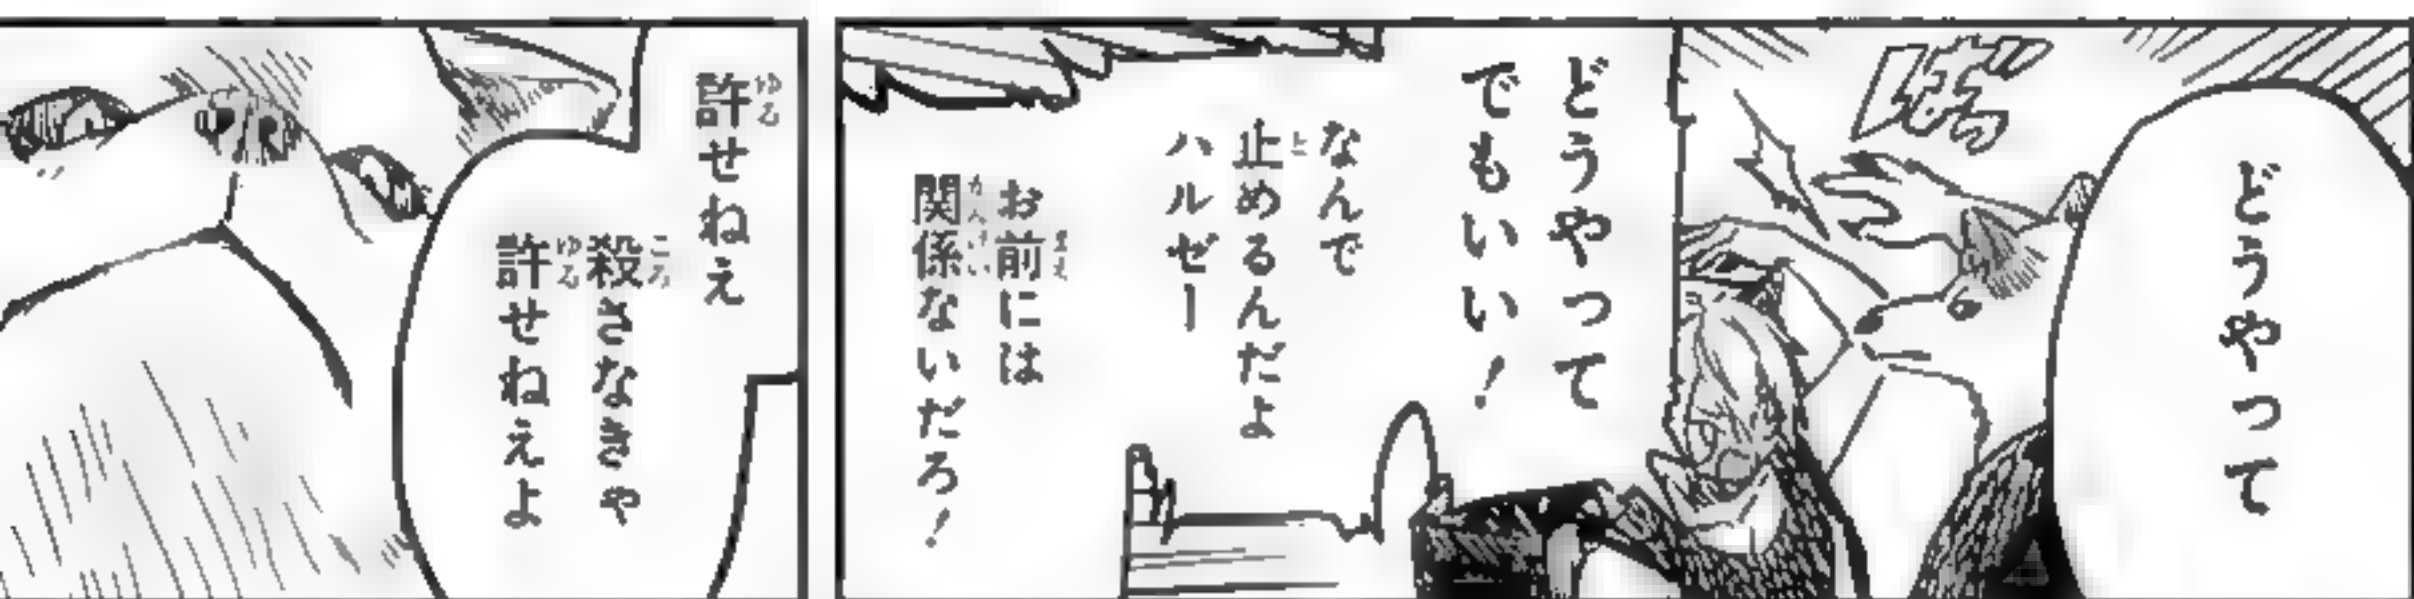 どうやって
ばっ
どうやって
でもいい!
なんで
止めるんだよ
ハルゼー
お前には
関係ないだろ!
許せねえ
殺さなきゃ
許せねえよ